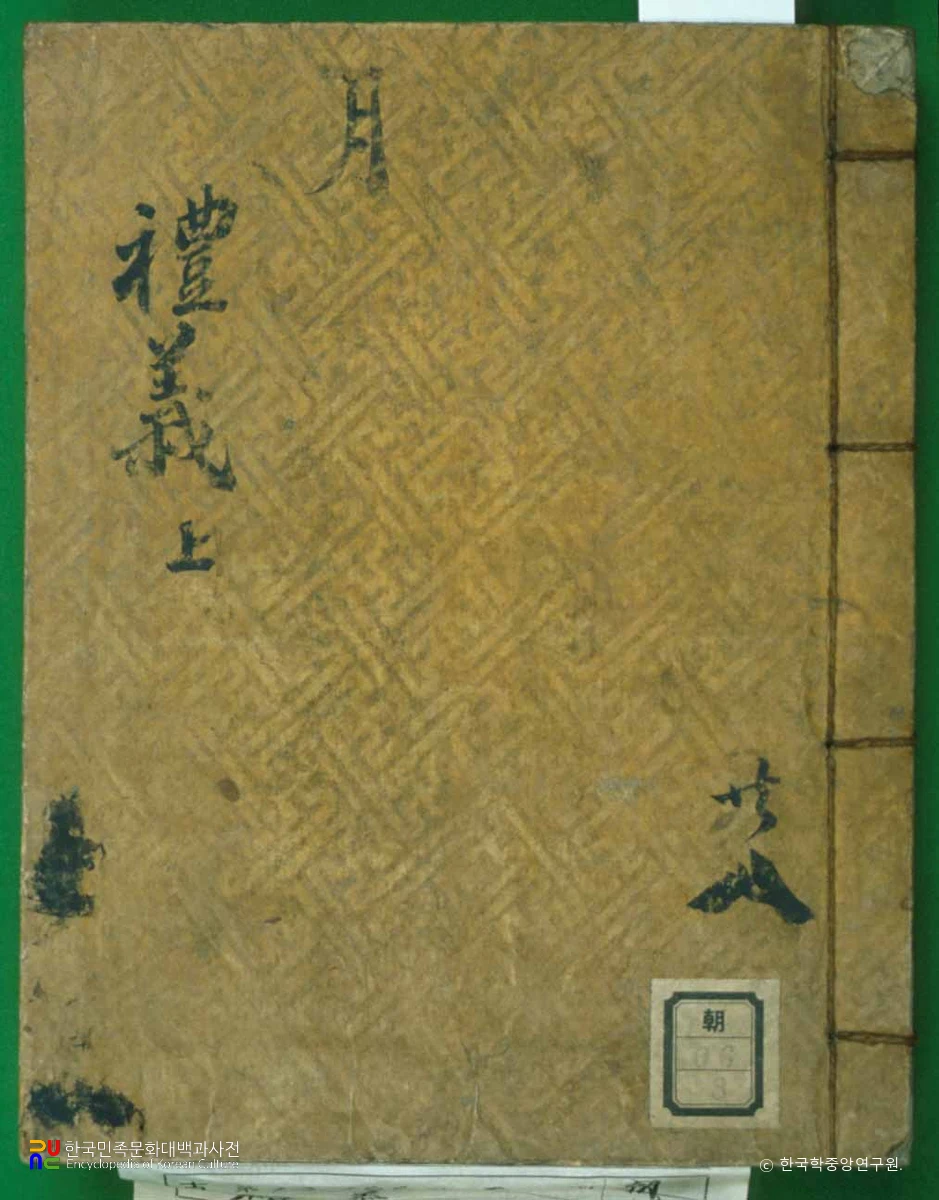 月
禮義 上
共
朝
06
8
한국민족문화대백과사전
Encyclopedia of Korean Culture
© 한국학중앙연구원.